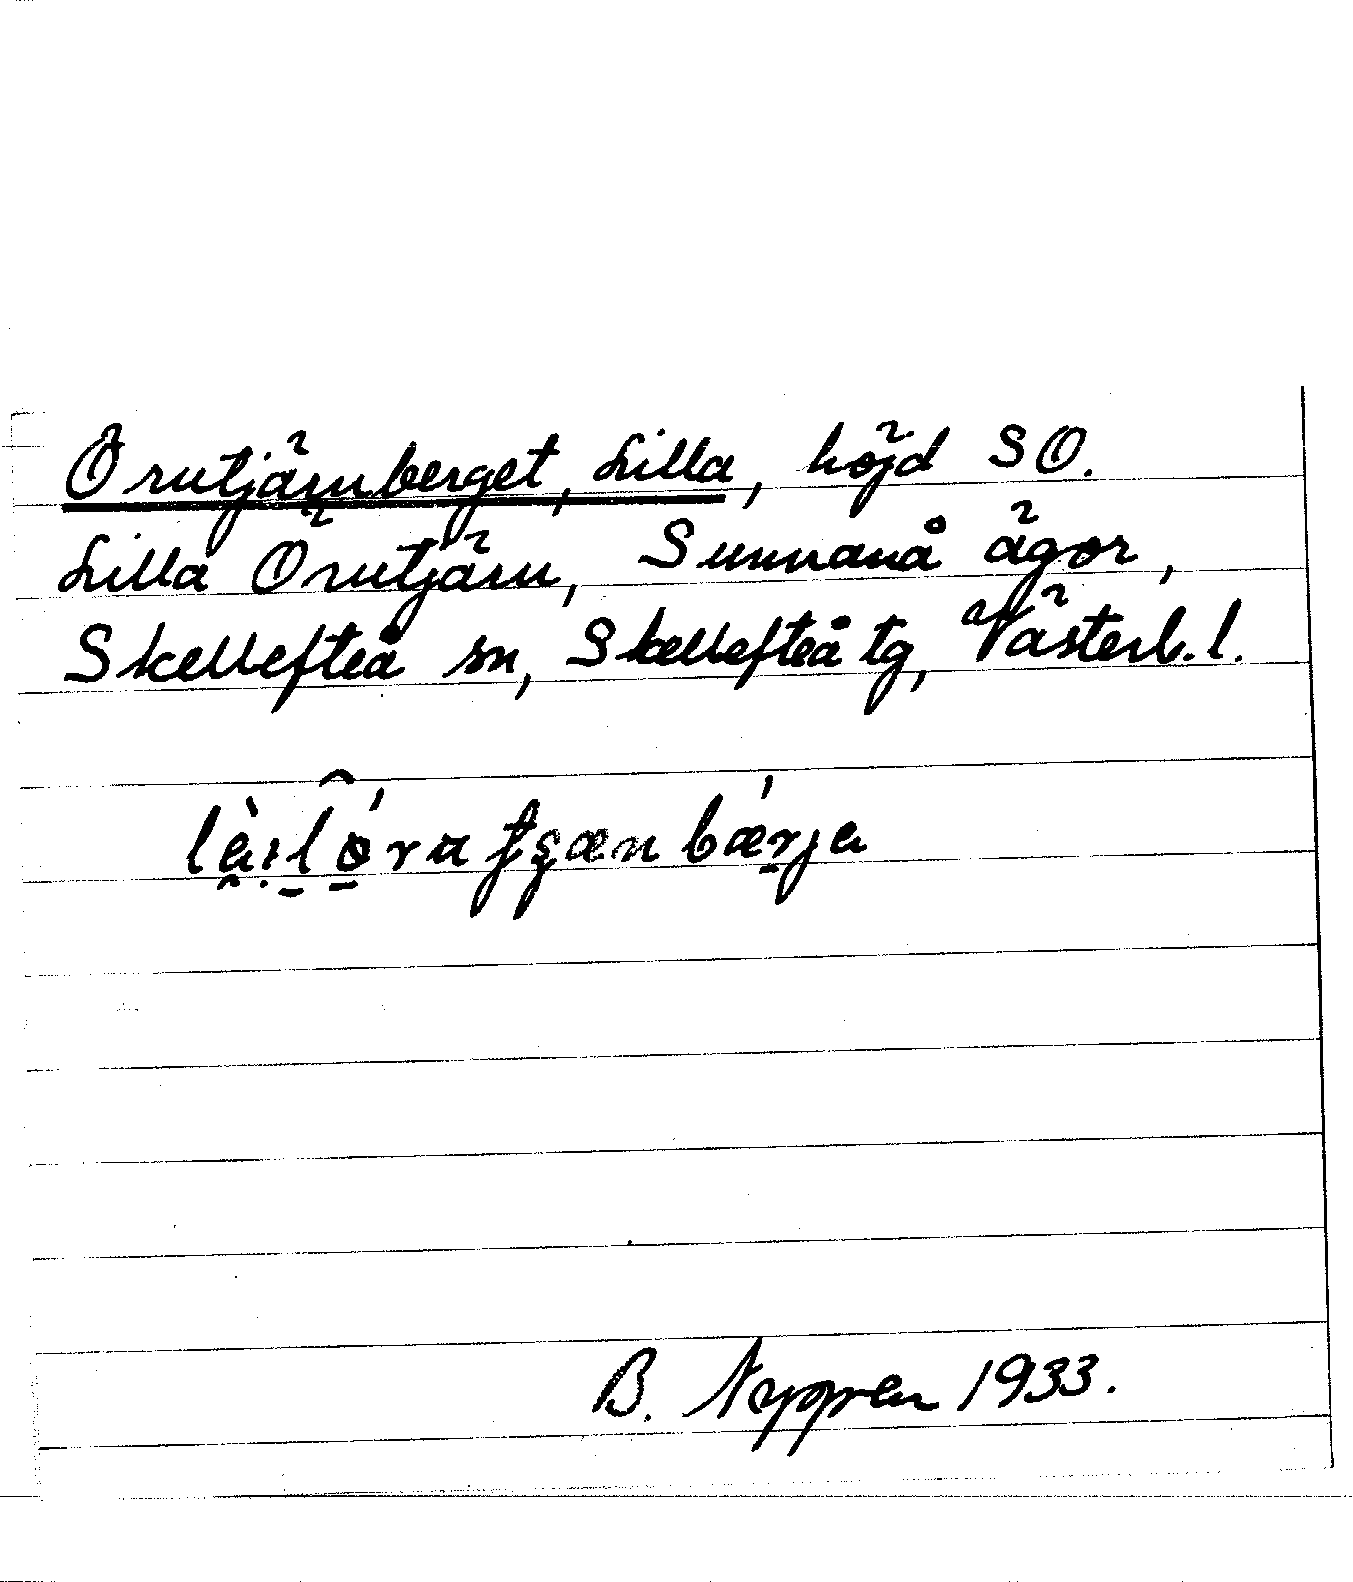 Örutjärnberget, Lilla, höjd SO.
Lilla Örutjärn, Sunnanå ägor,
Skellefteå sn, Skellefteå tg, Västerb. l.
B. Nyppen 1933.